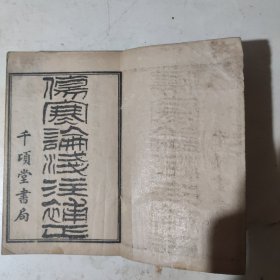 傷寒論淺注補正
千頃堂書局